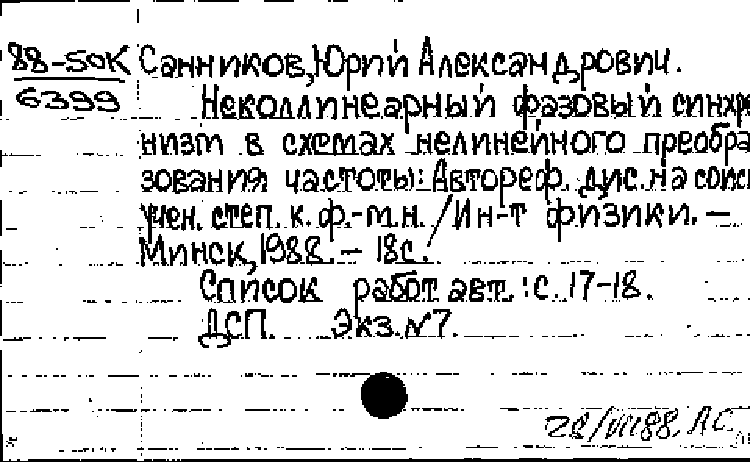 88-50К Санников, Юрий Александрович.
6399 Неколлинеарный фазовый синхро
низм в схемах нелинейного преобра
зования частоты: Автореф. дис. на соиск
учен. степ. к. ф.-м.н. / Ин-т физики. —
Минск, 1988. — 18с.
Список работ авт.: с. 17-18.
ДСП. Экз. №7.
28/VII88. ЛС.